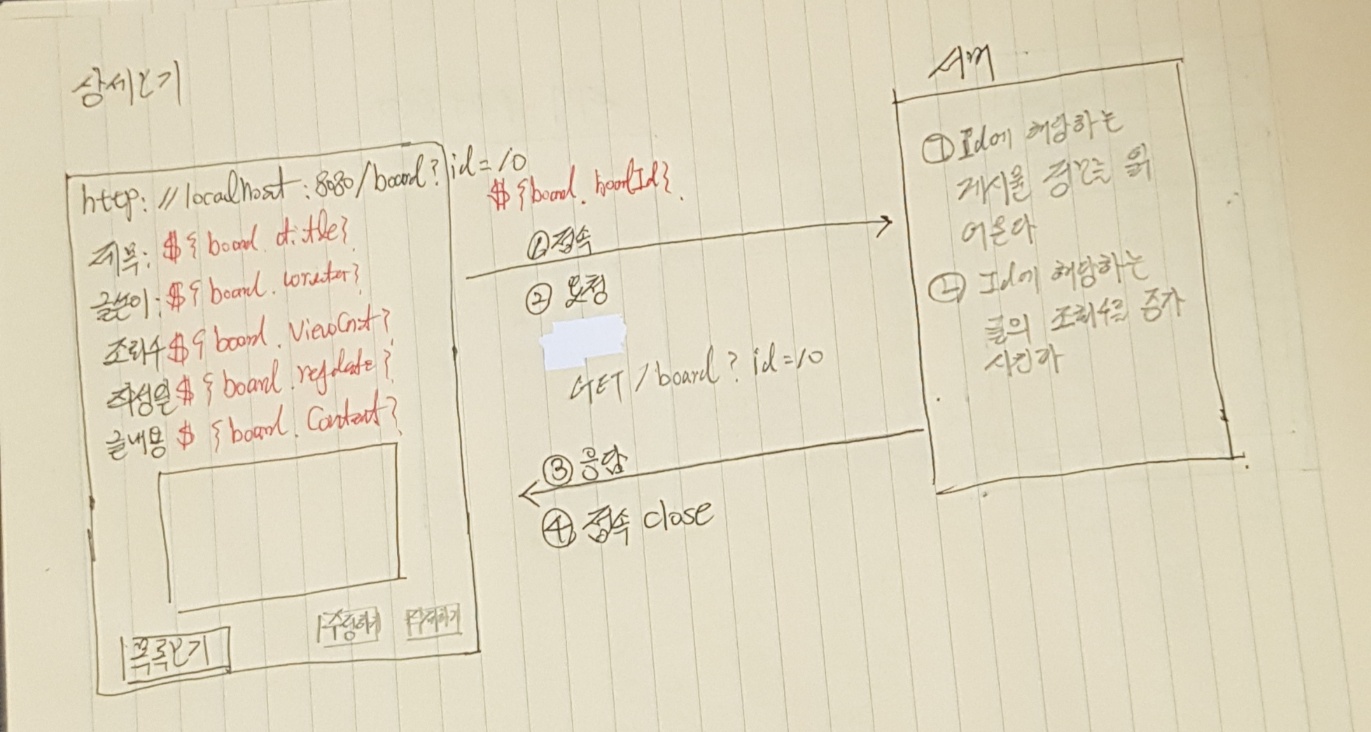 상세보기
http://localhost:8080/board?id=10
${board.boardId}
제목: ${board.title}
글쓴이: ${board.writer}
조회수 ${board.ViewCnt}
작성일 ${board.regdate}
글내용 ${board.Content}
목록보기
수정하기
삭제하기
①접속
② 요청
GET /board?id=10
③ 응답
④ 접속 close
서버
① Id에 해당하는
게시물 정보를 읽
어온다
② Id에 해당하는
글의 조회수를 증가
시킨다